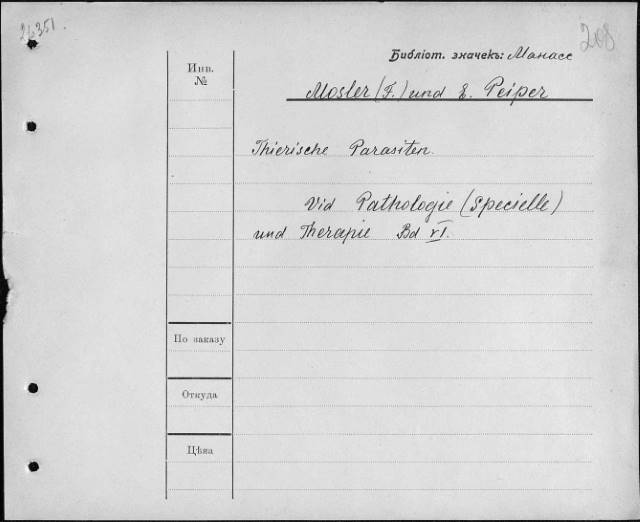 26351.
208
Библіот. значекъ: Манасс
Инв.
№
Mosler (F.) und E. Peiper
Thierische Parasiten.
Vid Pathologie (Specielle)
und Therapie Bd VI.
По заказу
Откуда
Цѣна